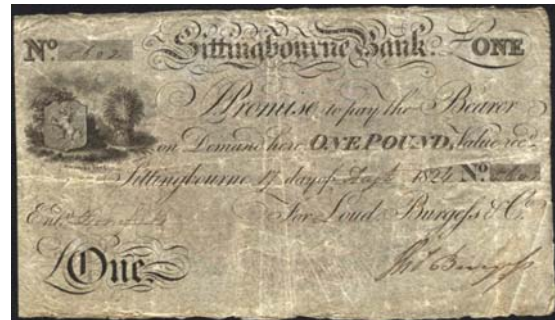 No. Sittingbourne Bank. £ONE
I Promise to pay the Bearer
on Demand here ONE POUND, Value recd.
Sittingbourne 17 day of 1824 No.
Entd. For Loud, Burgess & Co.
£One
Burgess